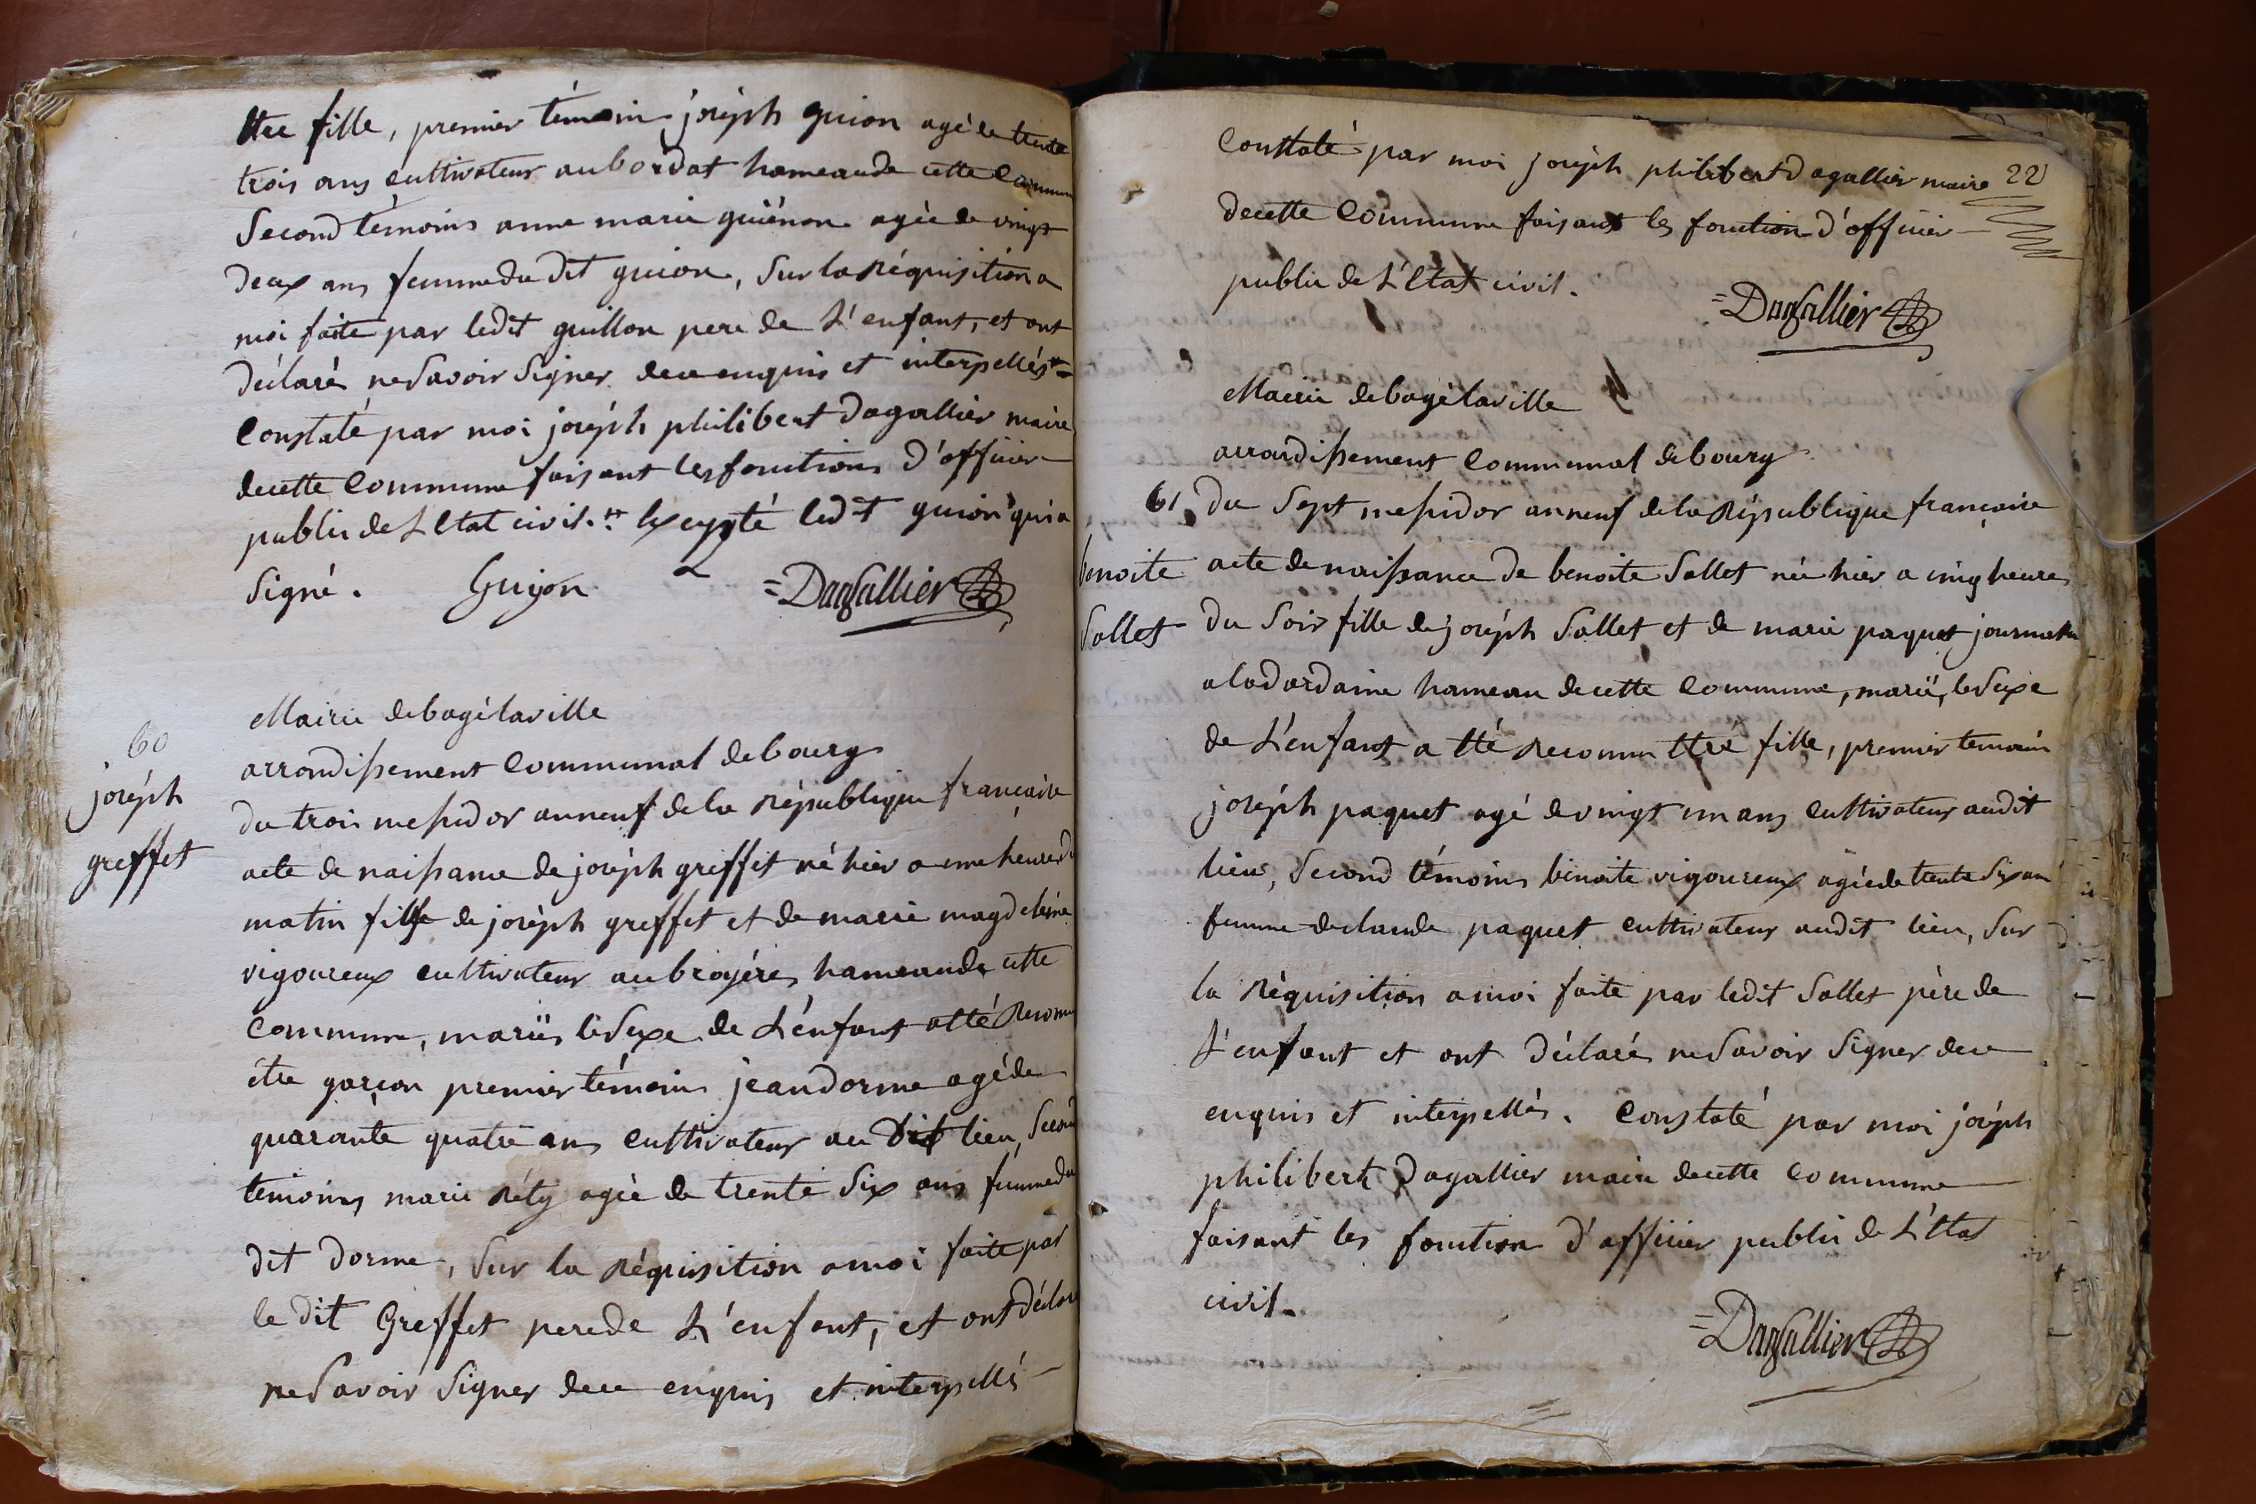 ttre fille, premier témoin joséph guion agé de trente
trois ans cultivateur au bordat hameau de cette Commun
Second témoins anne marie guiénon agée de vingt
deux ans femme du dit guion, Sur la Réquisition a
moi faite par ledit guillon pere de L'enfant, et ont
déclaré ne Savoir Signer de ce enquis et interpellés
Constaté par moi joséph philibert Dagallier maire
de cette Commune faisant les fonctions d'officier
public de L'Etat civil. Excepté ledit guion qui a
Signé. Guijon =Dagallier
Mairie de bagé la ville
arrondissement Communal de bourg
60
joséph
greffet
du trois messidor an neuf de la République française
acte de naissance de joséph greffet né hier a une heure du
matin fils de joséph greffet et de marie magdeleine
vigoureux cultivateur au broyéres hameau de cette
Commune, mariés le Sexe de L'énfant a tté Reconnu
étre garcon premier témoins jean dorme agé de
quarante quatre ans cultivateur au Dit lieu, Second
temoins marie Réty agée de trente Six ans femme du
dit dorme, Sur la Réquisition a moi faite par
le dit Greffet pere de L'enfent, et ont déclaré
ne Savoir Signer de ce enquis et interpellés
22
Constaté par moi joséph philibert Dagallier maire
de cette Commune faisant les fonction d'officier
public de L'Etat civil.
=Dagallier
Mairie de bagé la ville
arrondissement Communal de bourg
61
benoite
Sallet
du Sept messidor an neuf de la République françaire
acte de naissance de benoite Sallet née hier a cinq heures
du Soir fille de joséph Sallet et de marie paquet journalier
a la dardaine hameau de cette Commune, mariés, le Sexe
de L'énfant a tté Reconnu ttre fille, premier temoin
joséph paquet agé de vingt un ans cultivateur audit
lieu, Second témoins benoite vigoureux agée de trente Six ans
femme de claude paquet cultivateur audit lieu, Sur
la Réquisition a moi faite par ledit Sallet père de
L'enfant et ont déclaré ne Savoir Signer de ce
enquis et interpellés. Constaté par moi joséph
philibert Dagallier maire de cette Commune
faisant les fonction d'officier public de L'Etat
civil.
=Dagallier